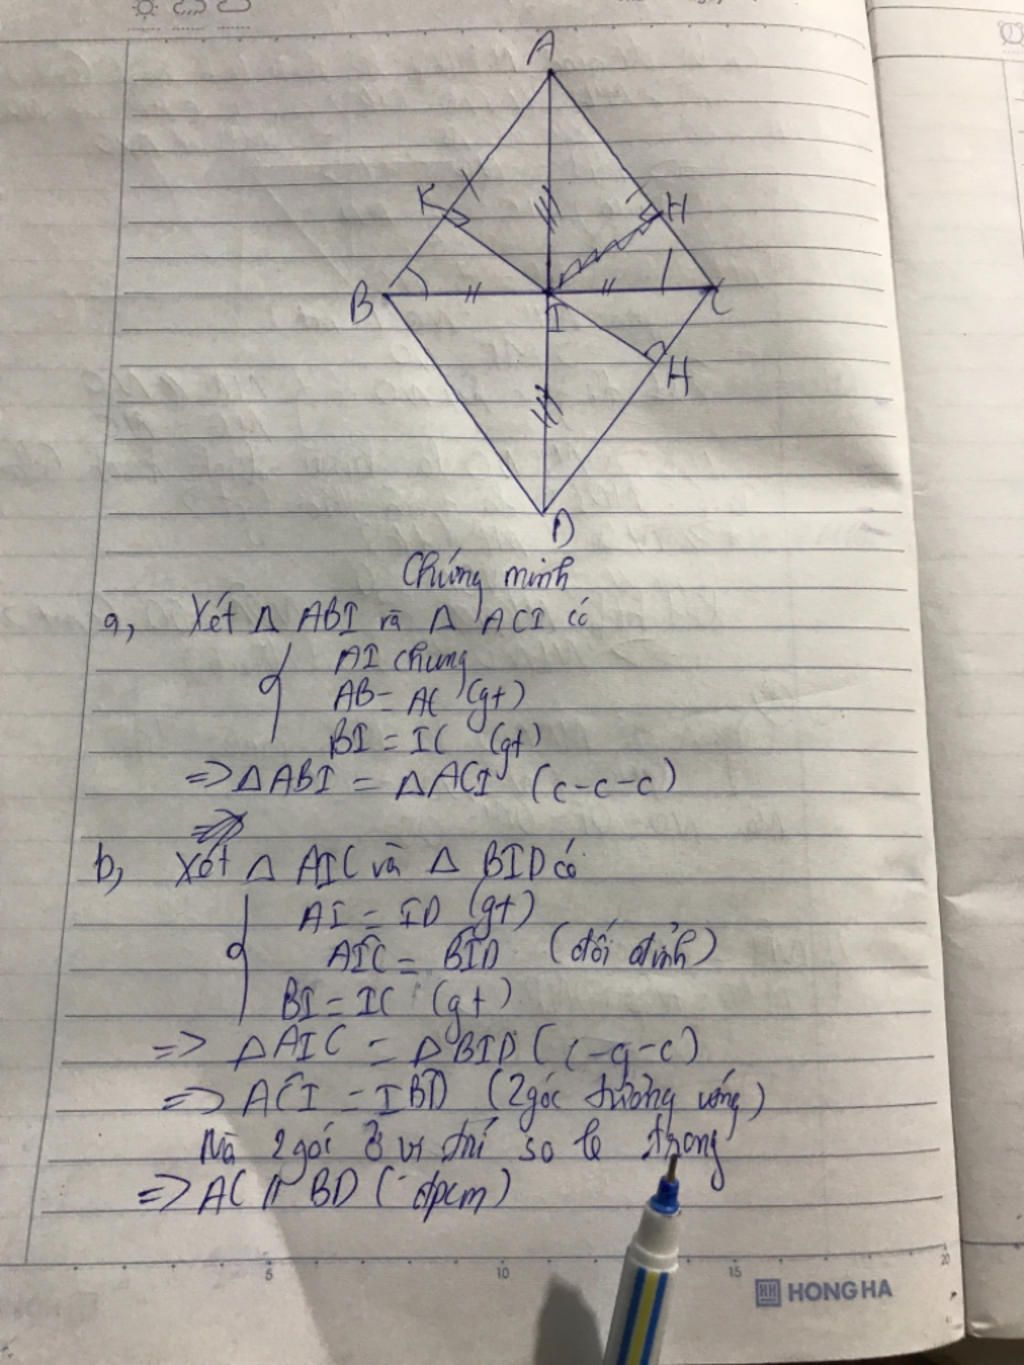 A
K
H
B
C
I
H
D
Chứng minh
a, Xét Δ ABI và Δ ACI có
AI chung
AB = AC (gt)
BI = IC (gt)
=> Δ ABI = Δ ACI (c-c-c)
b, Xét Δ AIC và Δ BID có
AI = ID (gt)
AÎC = BÎD (đối đỉnh)
BI = IC (gt)
=> Δ AIC = Δ BID (c-g-c)
=> AĈI = IB̂D (2 góc tương ứng)
Mà 2 góc ở vị trí so le trong
=> AC // BD (đpcm)
5 10 15 20
HH HONG HA